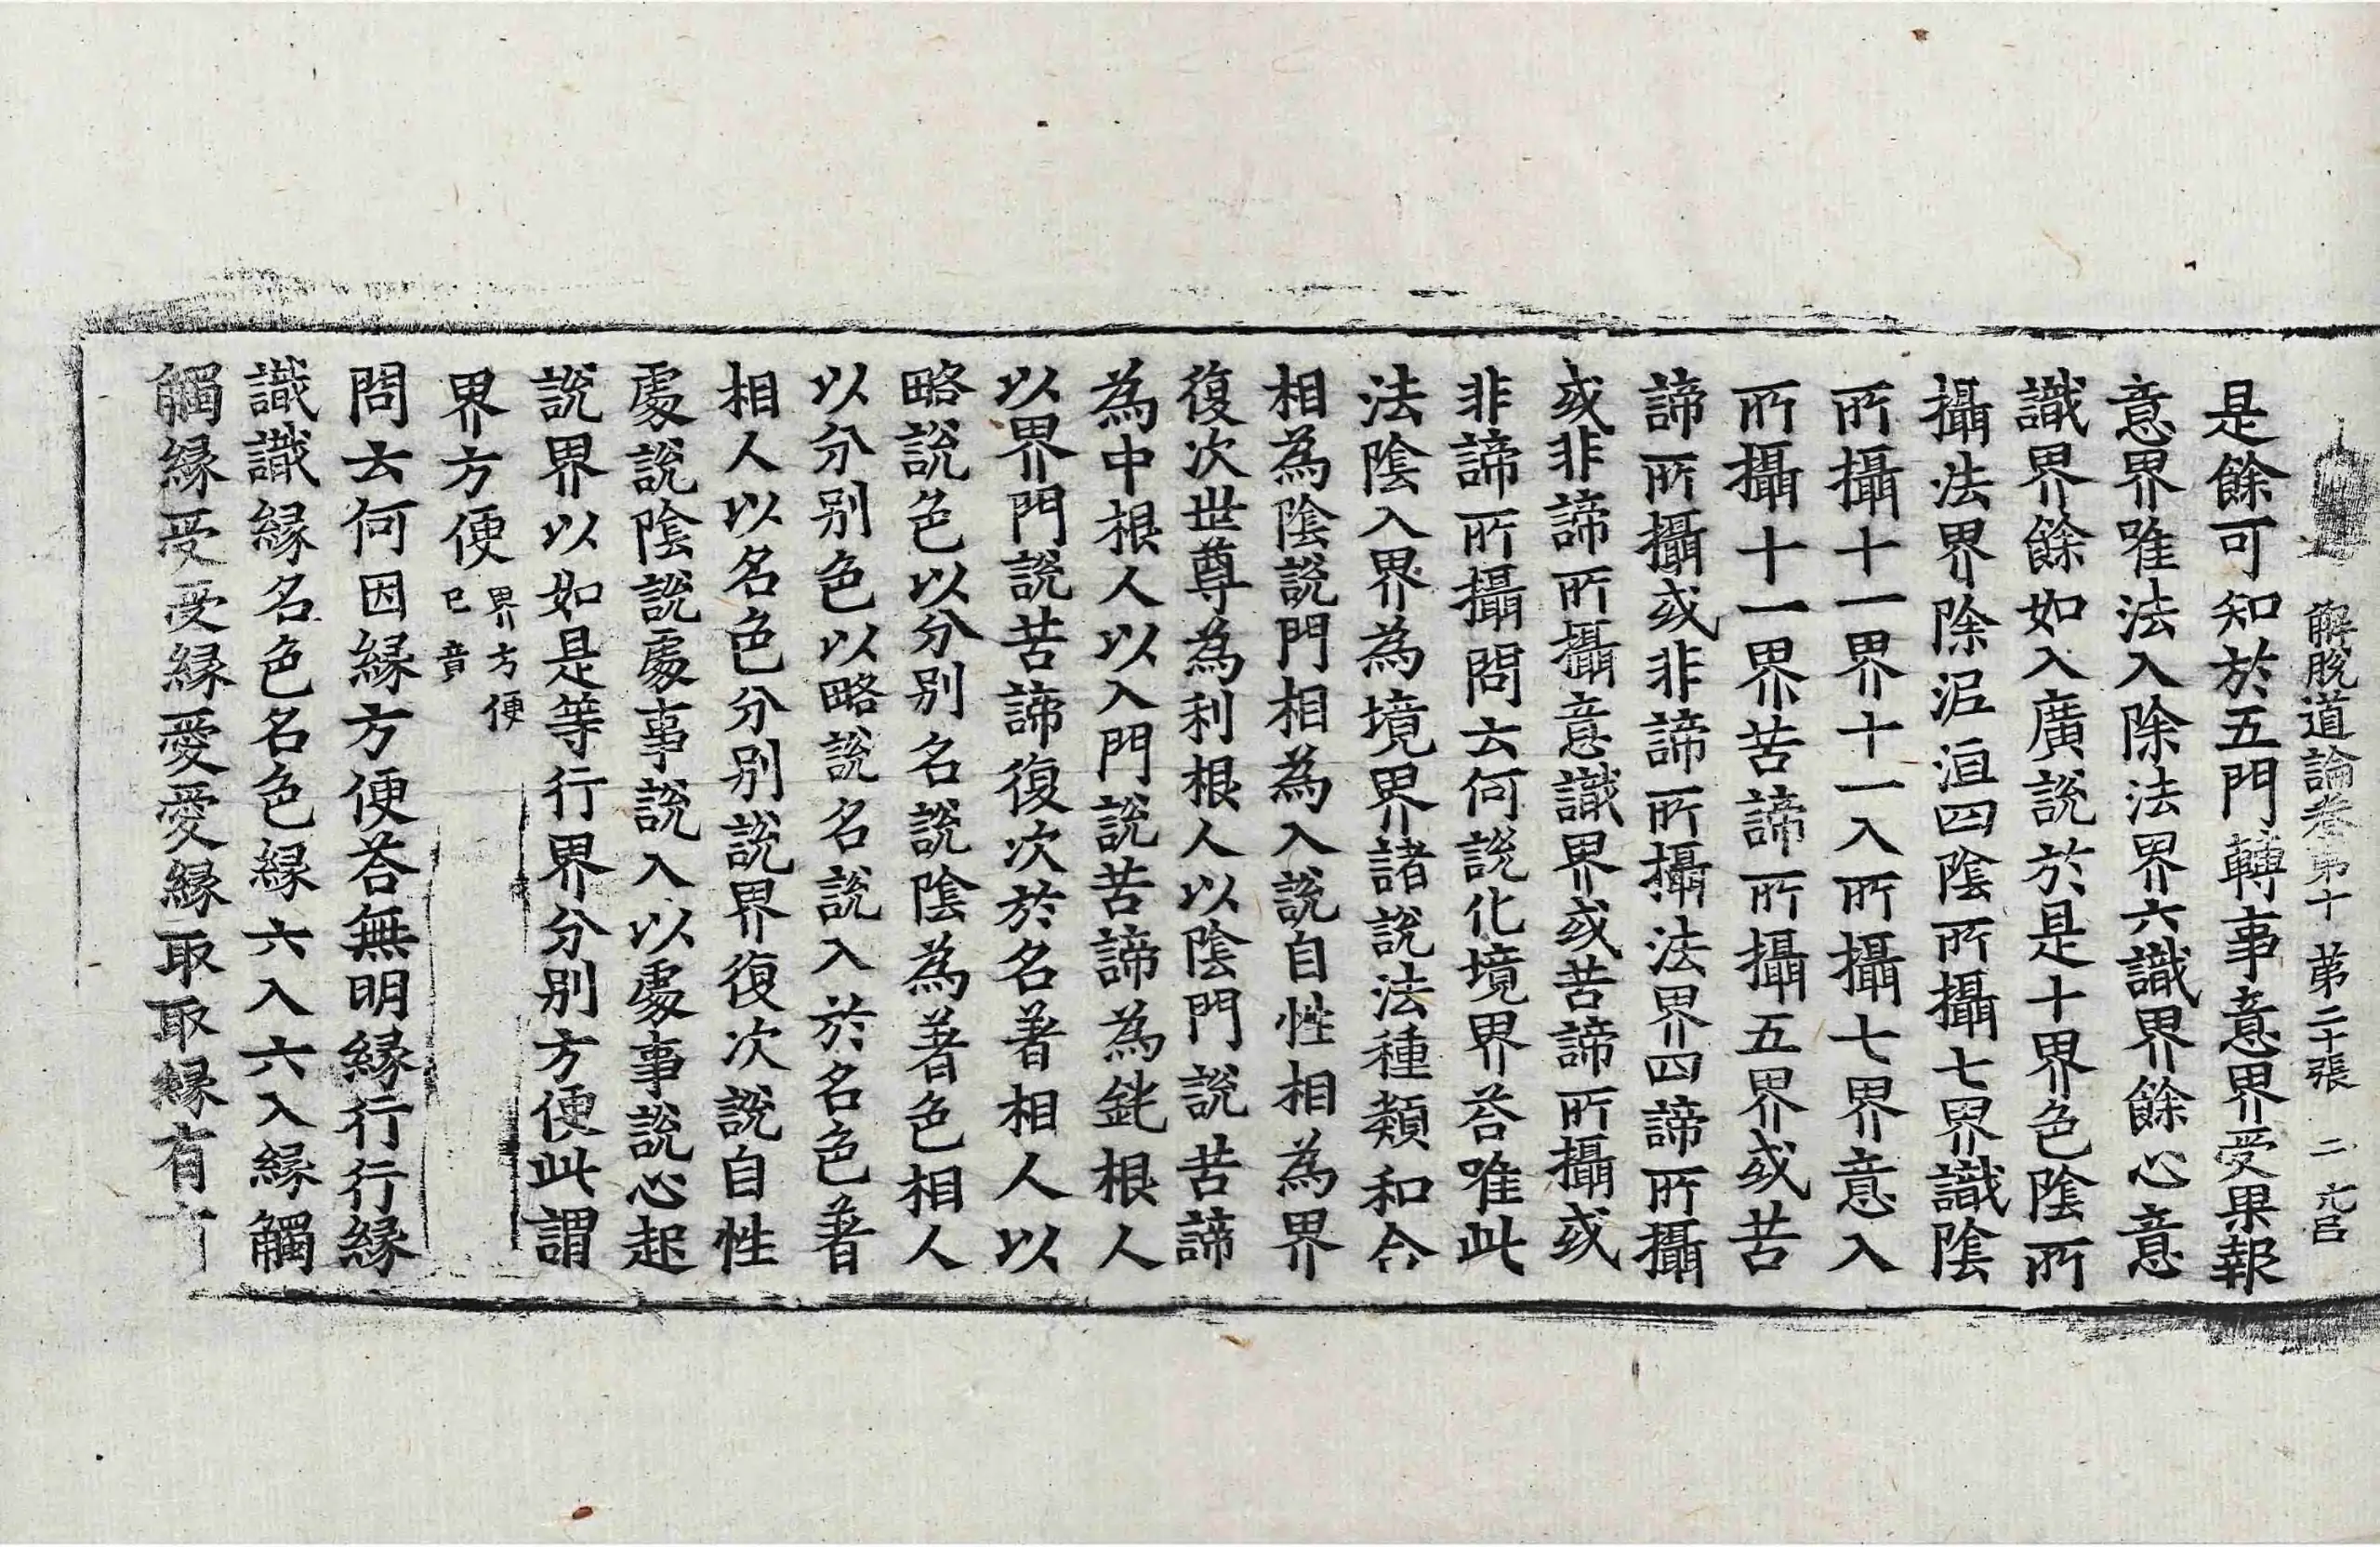 解脫道論卷第十 第二十張 二
是餘可知於五門轉事意界受果報
意界唯法入除法界六識界餘心意
識界餘如入廣說於是十界色陰所
攝法界除泥洹四陰所攝七界識陰
所攝十一界十一入所攝七界意入
所攝十一界苦諦所攝五界或苦
諦所攝或非諦所攝法界四諦所攝
或非諦所攝意識界或苦諦所攝或
非諦所攝問云何說化境界荅唯此
法陰入界為境界諸說法種類和合
相為陰說門相為入說自性相為界
復次世尊為利根人以陰門說苦諦
為中根人以入門說苦諦為鈍根人
以界門說苦諦復次於名著相人以
略說色以分別名說陰為著色相人
以分別色以略說名說入於名色著
相人以名色分別說界復次說自性
處說陰說處事說入以處事說心起
說界以如是等行界分別方便此謂
界方便 界方便已竟
問云何因緣方便荅無明緣行行緣
識識緣名色名色緣六入六入緣觸
觸緣受受緣愛愛緣取取緣有